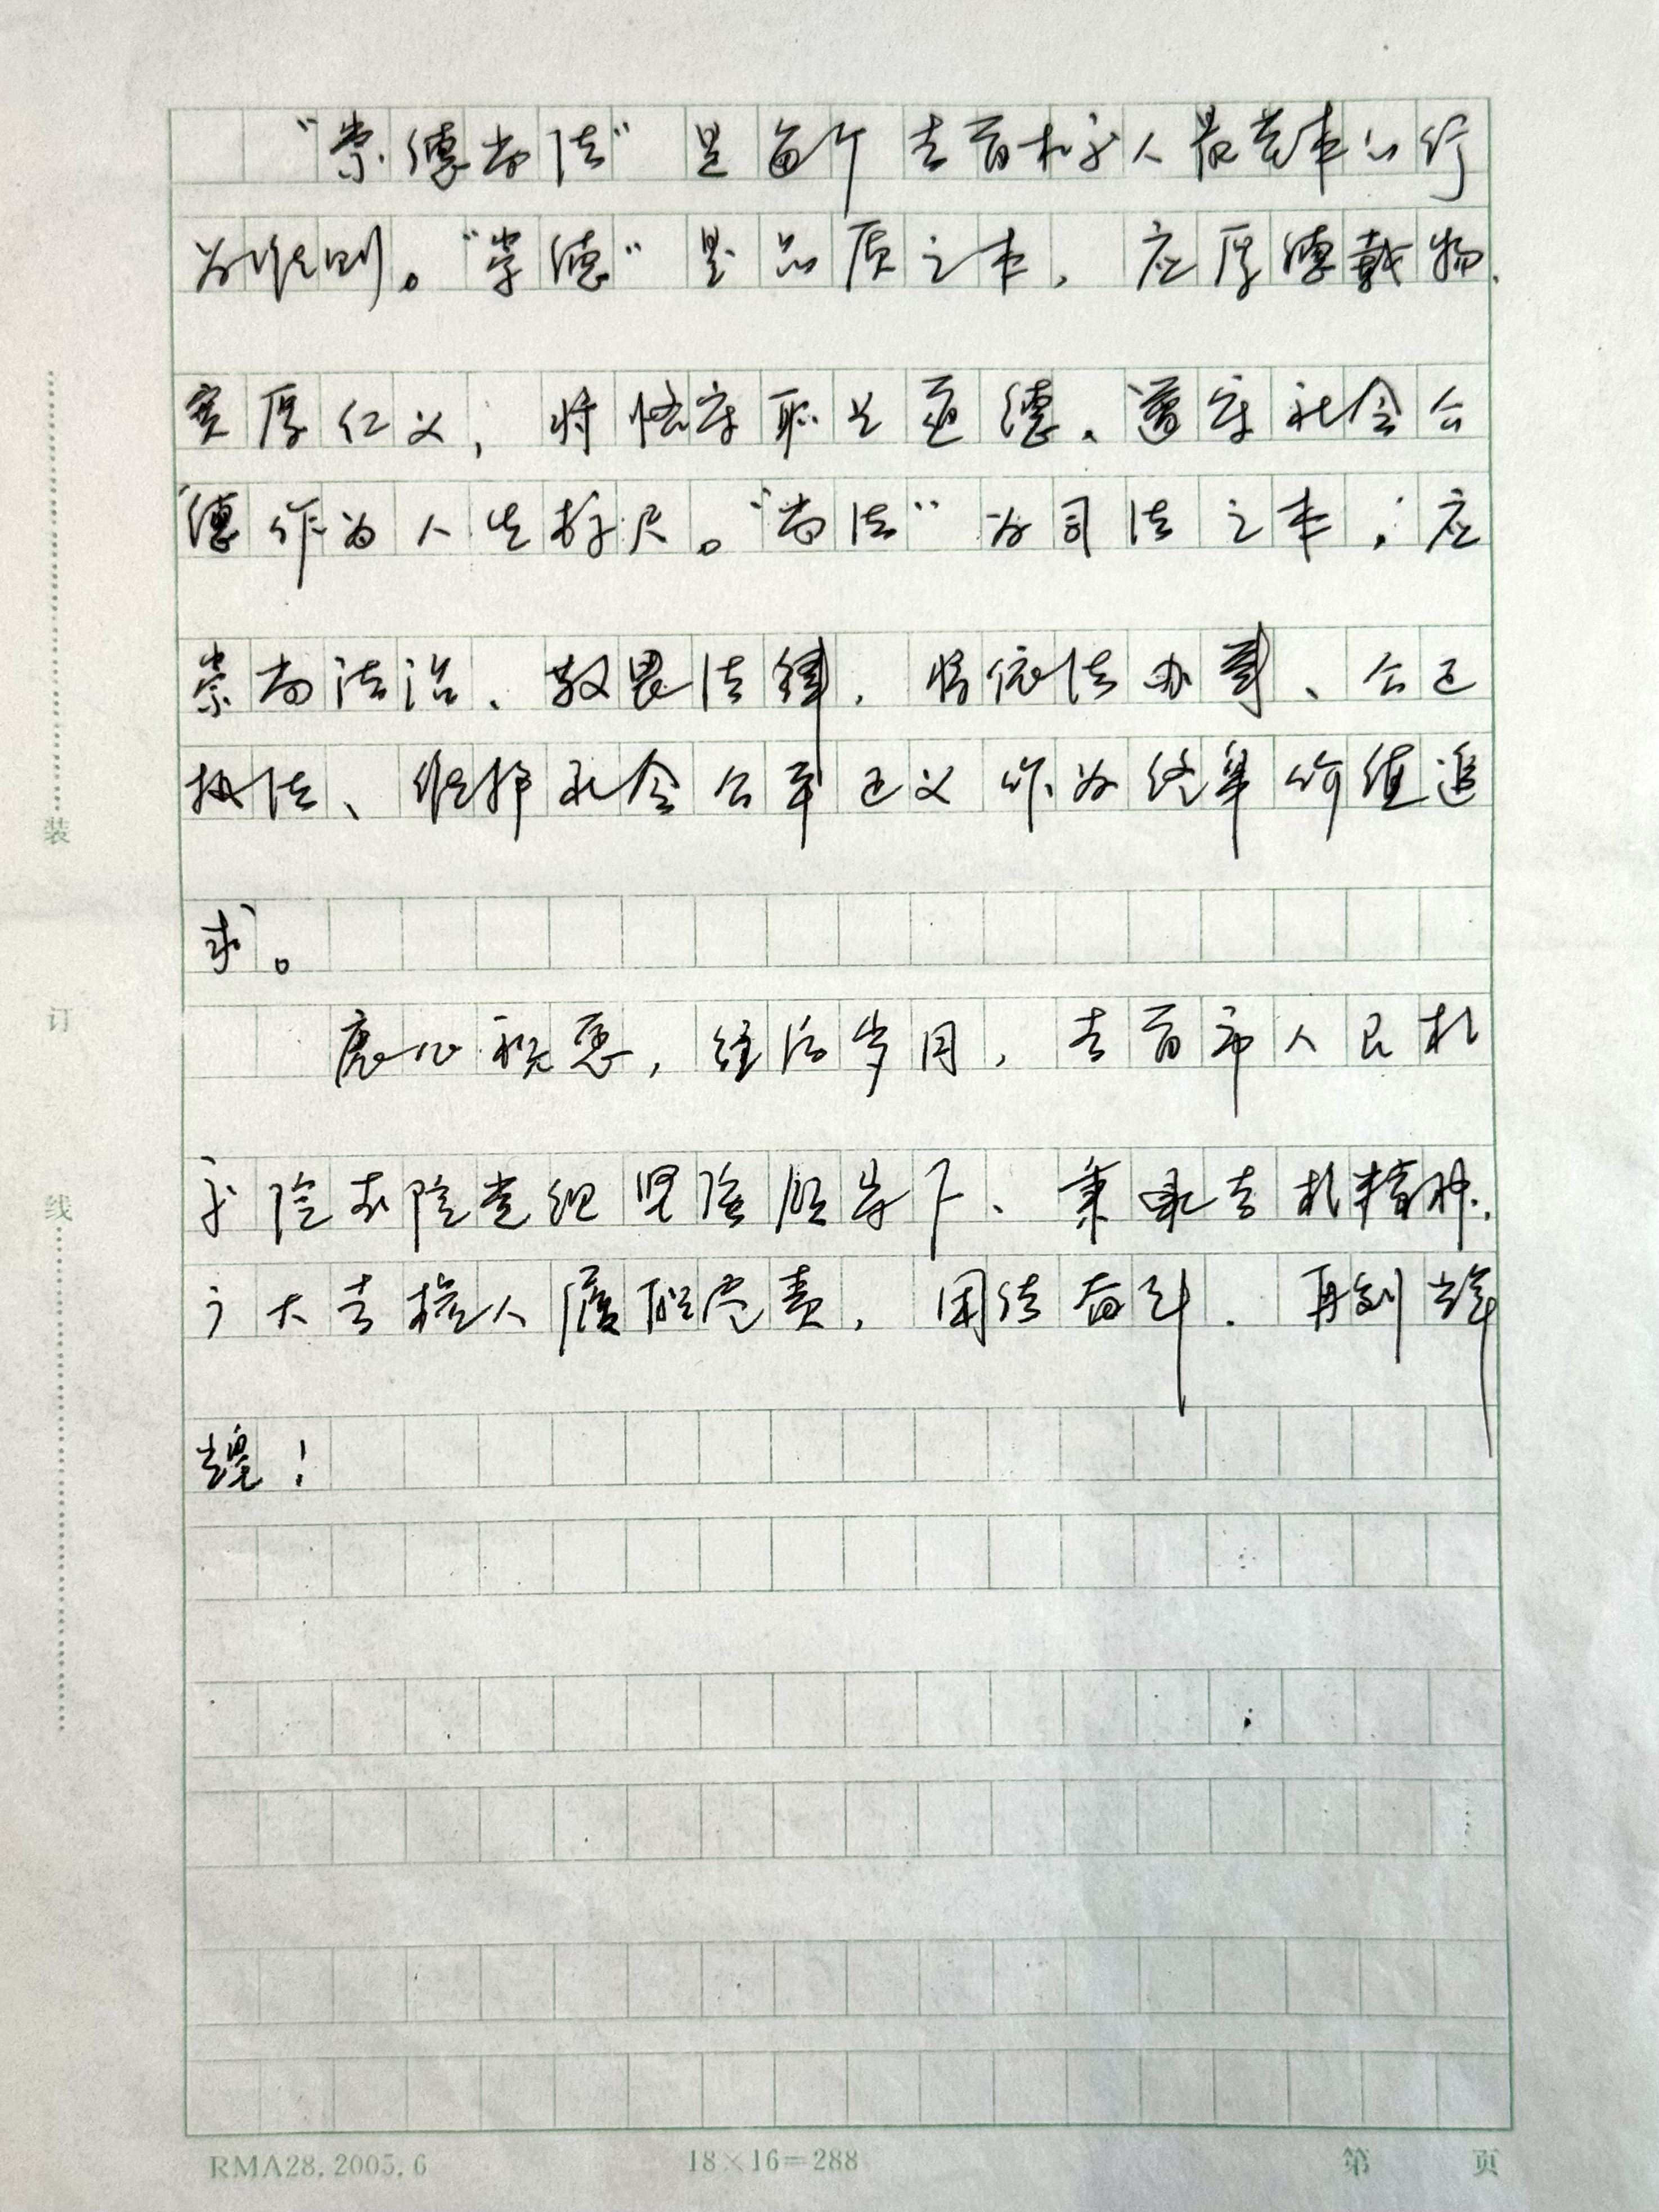 “崇德尚法”是每个吉首检察人最基本的行
为准则。“崇德”是品质之本，应厚德载物、
宽厚仁义，将恪守职业道德、遵守社会公
德作为人生标尺。“尚法”为司法之本，应
崇尚法治、敬畏法律，将依法办事、公正
执法、维护社会公平正义作为终身价值追
求。
衷心祝愿，往后岁月，吉首市人民检
察院在院党组坚强领导下、秉承吉检精神，
广大吉检人履职尽责，团结奋斗，再创辉
煌！
装
订
线
RMA28.2005.6
18×16=288
第 页